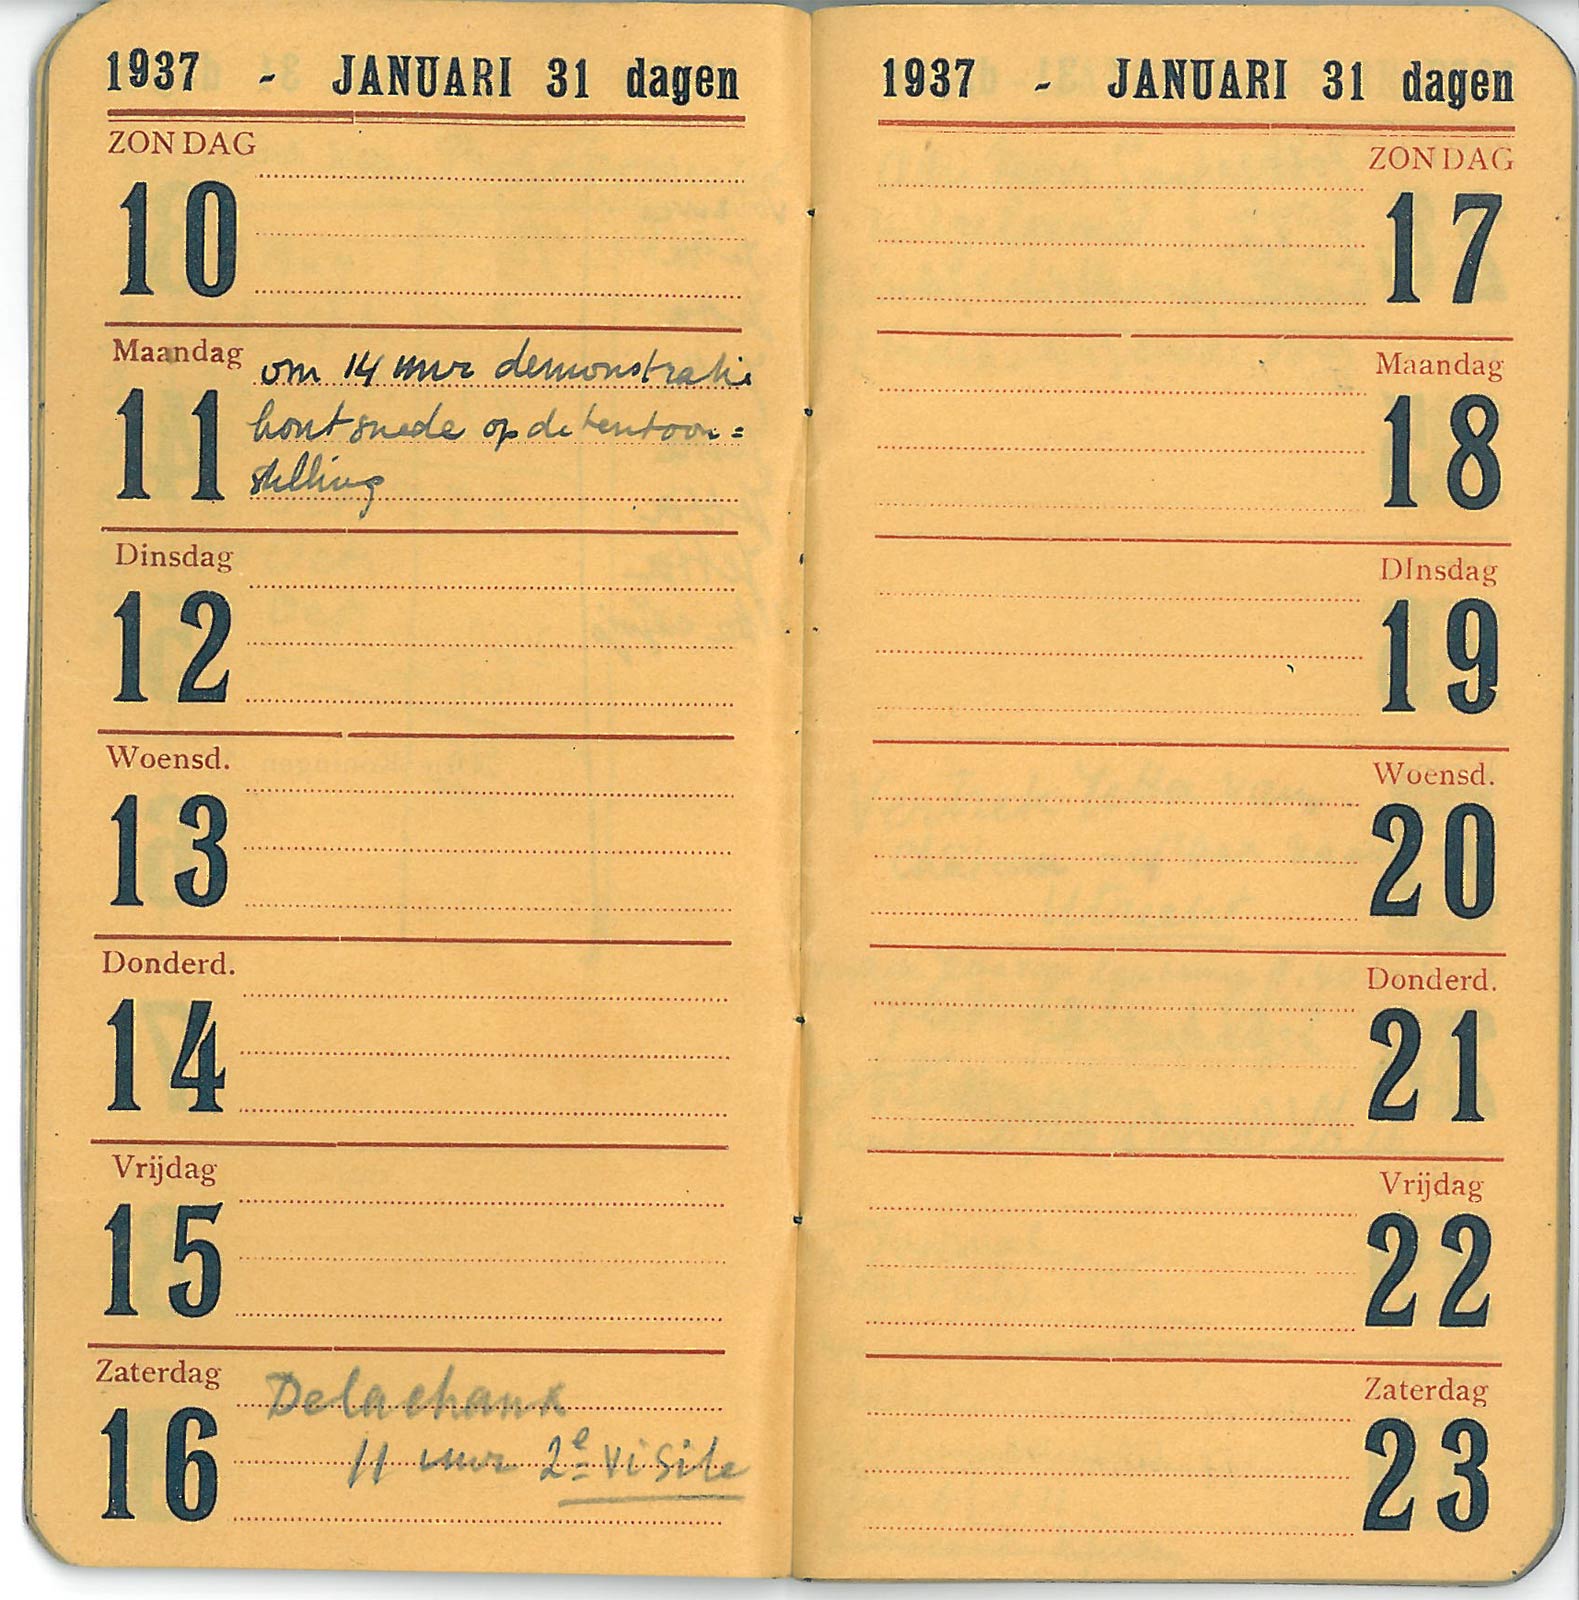 1937 - JANUARI 31 dagen
ZONDAG
10
Maandag
11
om 14 uur demonstratie
houtsnede op de tentoon=
stelling
Dinsdag
12
Woensd.
13
Donderd.
14
Vrijdag
15
Zaterdag
16
Delachank
11 uur 2e visite
1937 - JANUARI 31 dagen
ZONDAG
17
Maandag
18
DInsdag
19
Woensd.
20
Donderd.
21
Vrijdag
22
Zaterdag
23